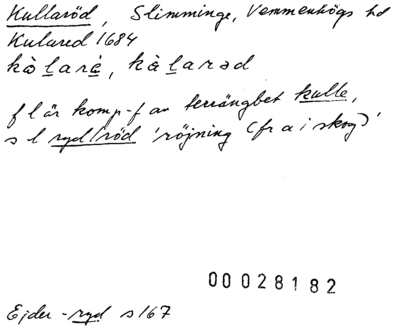 Kullaröd, Slimminge, Vemmenhögs hd
Kulared 1684
kòlarè, kòlarəd
f l är komp-f av terrängbet kulle,
s l ryd/röd 'röjning (fr a i skog)'
00028182
Ejder -ryd s 167